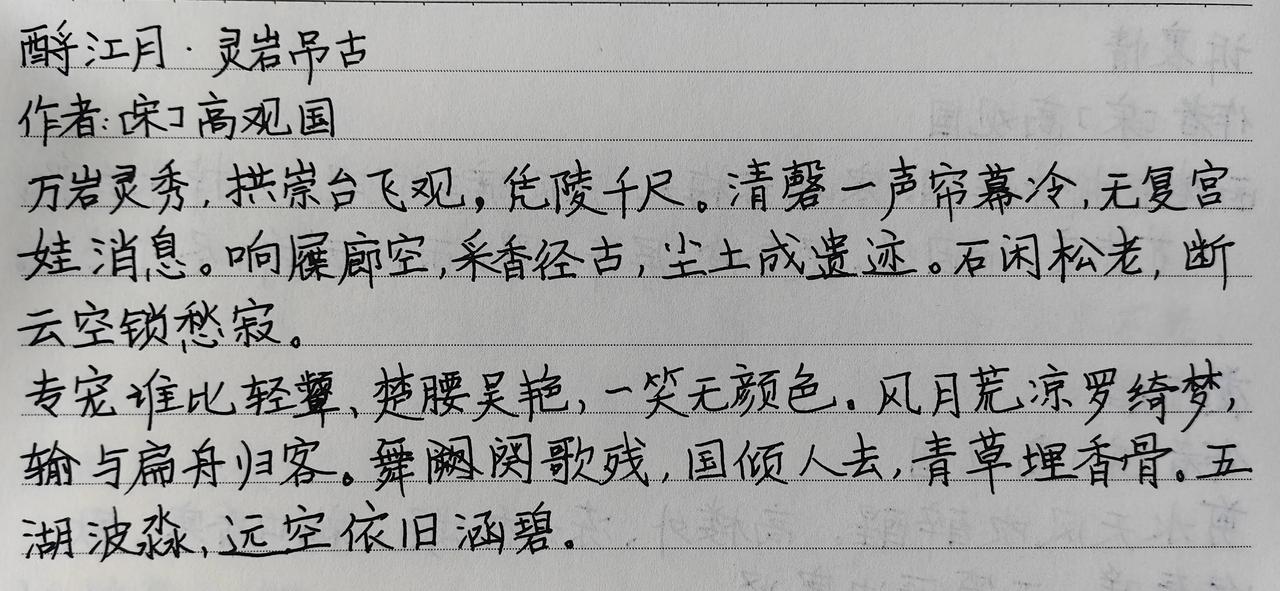 酹江月·灵岩吊古
作者:[宋]高观国
万岩灵秀,拱崇台飞观,凭陵千尺。清磬一声帘幕冷,无复宫
娃消息。响屧廊空,采香径古,尘土成遗迹。石闲松老,断
云空锁愁寂。
专宠谁比轻颦、楚腰吴艳,一笑无颜色。风月荒凉罗绮梦,
输与扁舟归客。舞阕歌残,国倾人去,青草埋香骨。五
湖波淼,远空依旧涵碧。